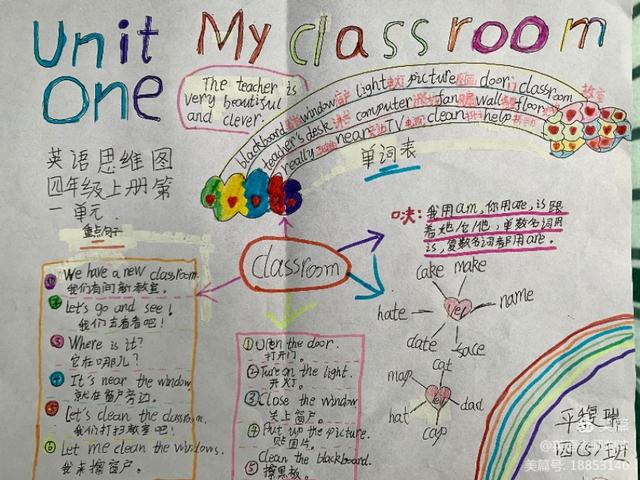 Unit One
My classroom
The teacher is
very beautiful
and clever.
blackboard window窗户 light电灯 picture图画 door门 classroom教室
teacher's desk讲台 computer fan wall floor
really near TV clean help
单词表
英语思维图
四年级上册第
一单元.
重点句子
classroom
口决: 我用am,你用are,is跟
着她/它/他,单数名词用
is,复数名词都用are.
① We have a new classroom.
我们有间新教室.
② Let's go and see!
我们去看看吧!
③ Where is it?
它在哪儿?
④ It's near the window.
就在窗户旁边.
⑤ Let's clean the classroom.
我们打扫教室吧!
⑥ Let me clean the windows.
我来擦窗户.
① Open the door.
打开门.
② Turn on the light.
开灯.
③ Close the window
关上窗户.
④ Put up the picture.
贴图片.
⑤ Clean the blackboard.
擦黑板.
cake make
hate name
date face
cat
map dad
hat cap
平馥瑞
四(5)班
美篇
美篇号: 18853146